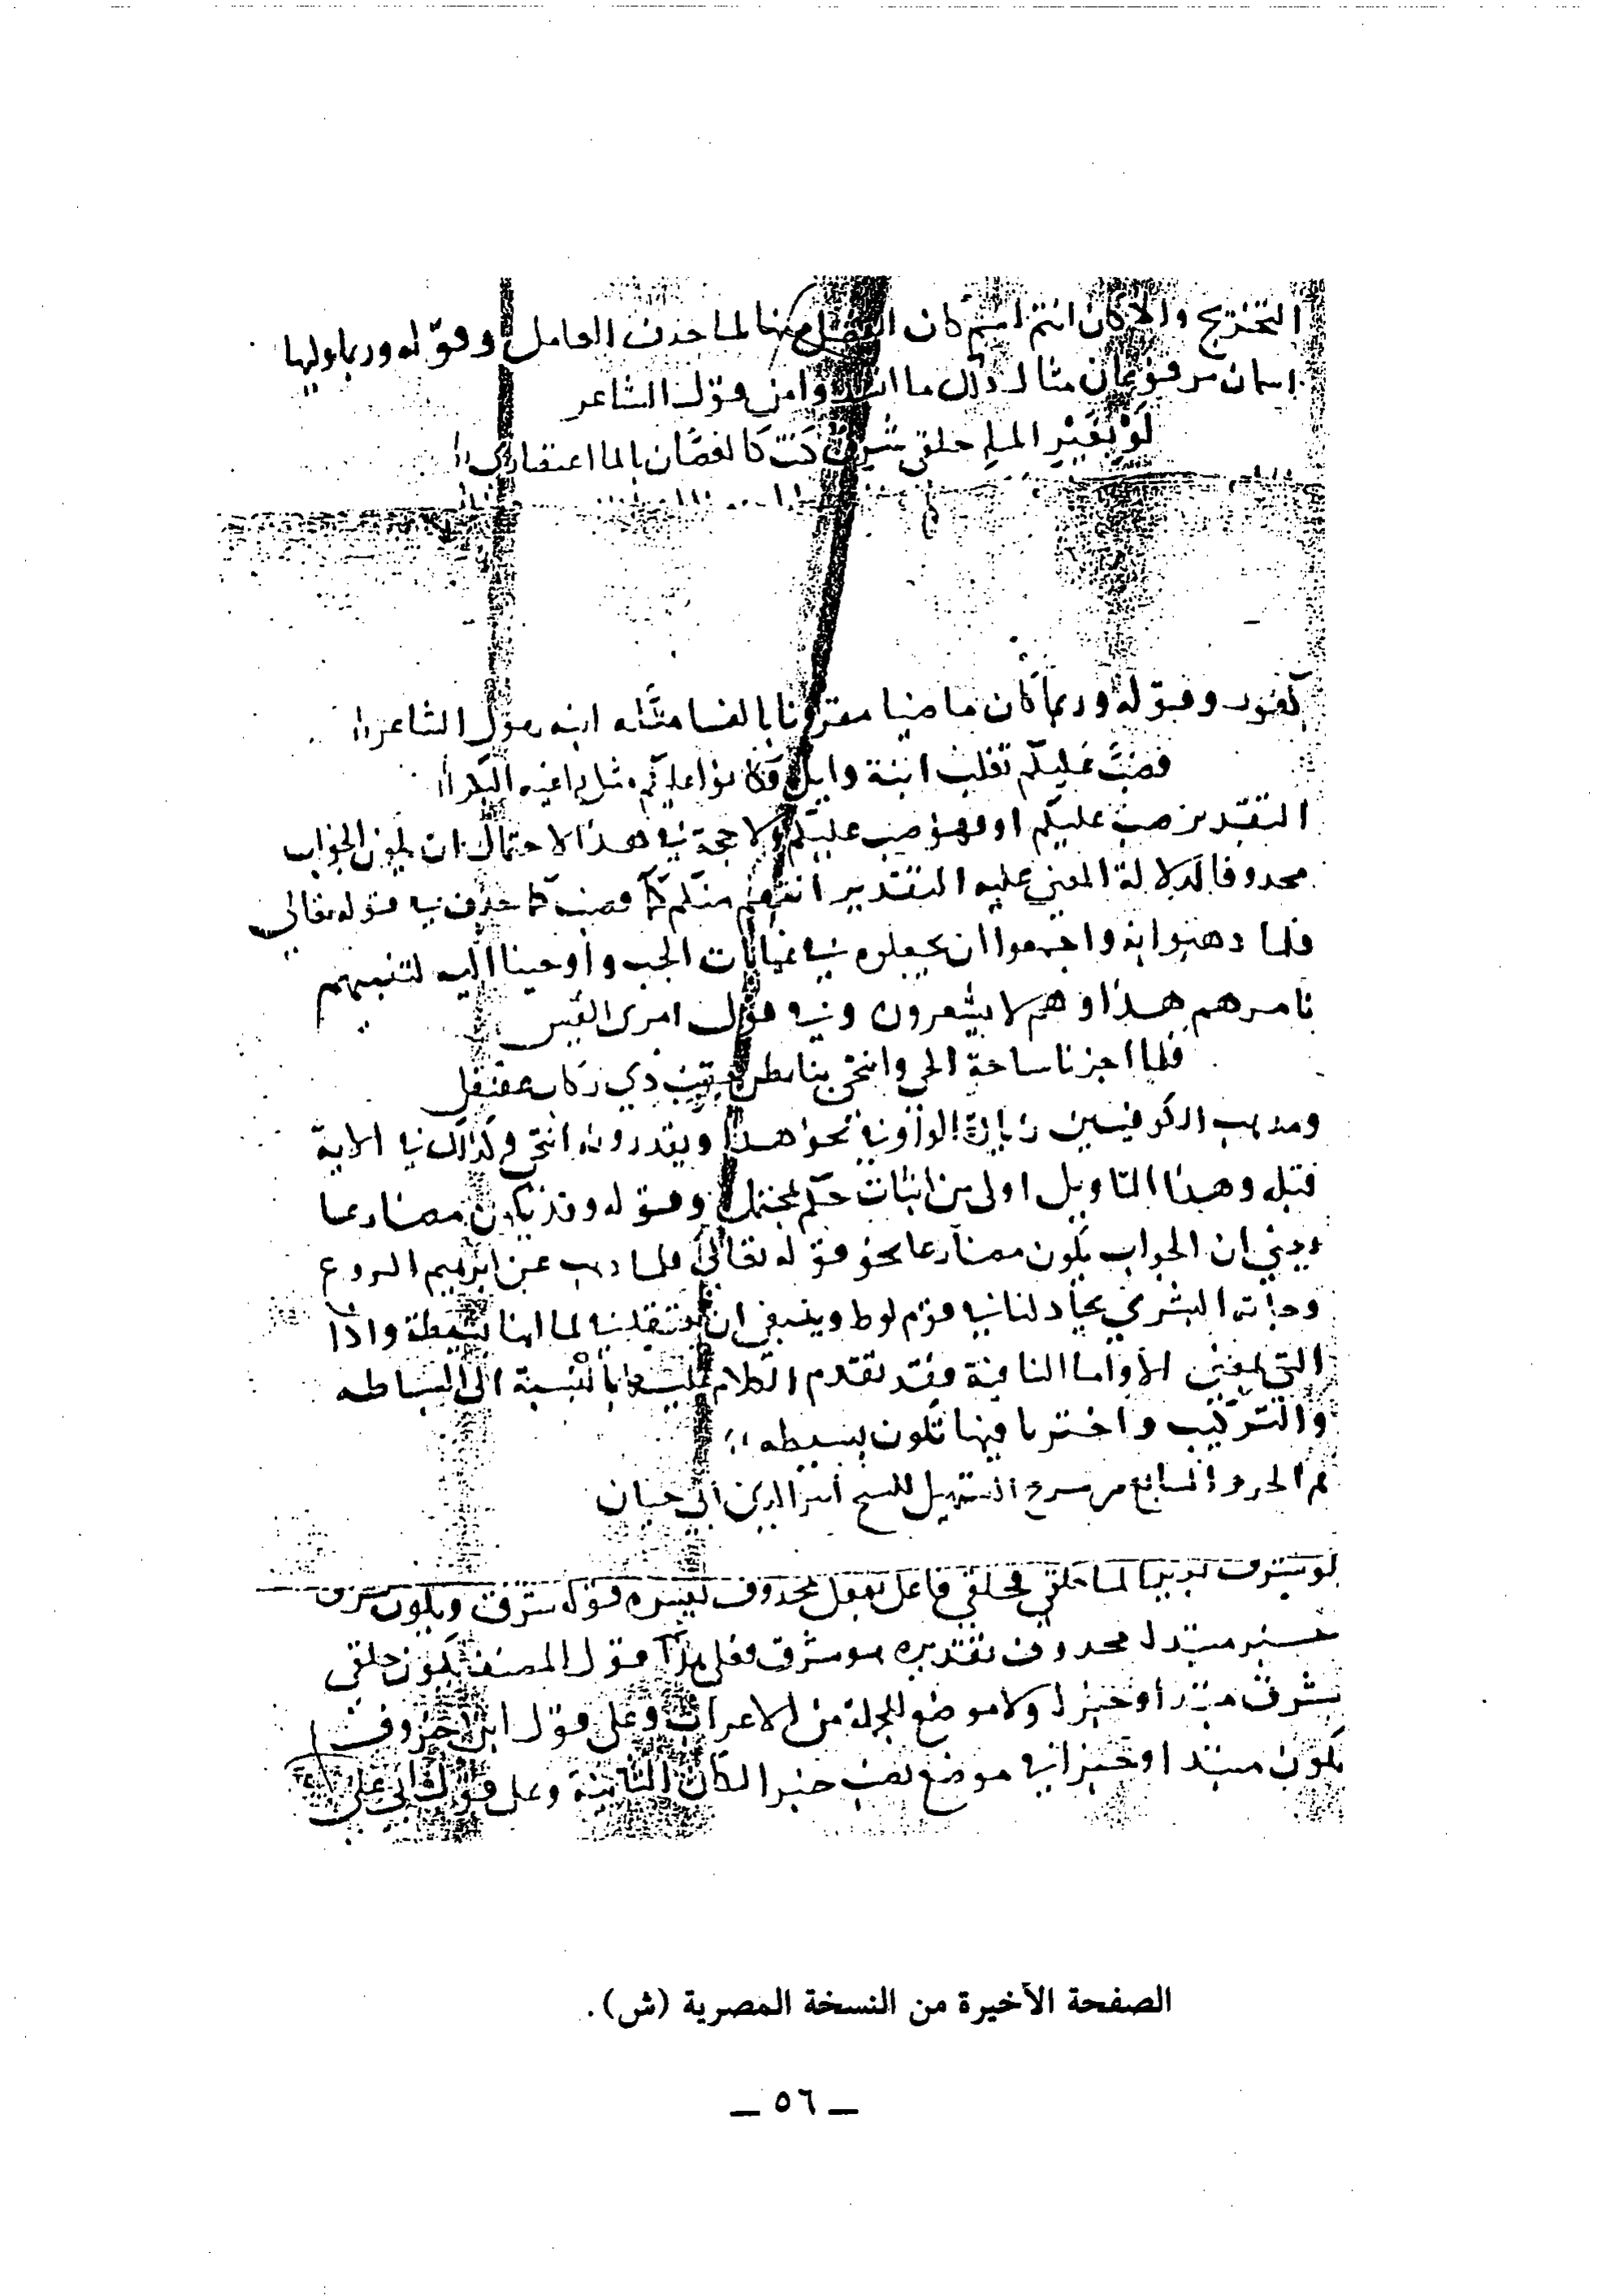 التخريج والا كان انتم اسم كان انفصل منها لما حذف العامل وقوله وربما وليها
اسمان مرفوعان مثال ذلك ما انشدوا من قول الشاعر
لو بغير الماء حلقي شرق كنت كالغصان بالما اعتصاري
وقوله وربما كان ماضيا مقرونا بالفا مثاله ابنه بقول الشاعر
فصبت عليكم تغلب ابنة وايل فكانوا عليكم مثل راغية البكر
التقدير صبت عليكم او فهو صب عليكم ولا حجة في هذا لاحتمال ان يكون الجواب
محذوفا لدلالة المعنى عليه التقدير انتقم منكم فصبت كما حذف في قوله تعالى
فلما ذهبوا به واجمعوا ان يجعلوه في غيابات الجب واوحينا اليه لتنبينهم
بامرهم هذا وهم لا يشعرون وفي قول امرى القيس
فلما اجزنا ساحة الحي وانتحى بنا بطن ذي ركام عقنقل
ومذهب الكوفيين زيادة الواو في نحو هذا ويقدرونه انتحى وكذلك في الاية
قبله وهذا التاويل اولى من اثبات حكم بمحتمل وقوله وقد يكون مضارعا
يعني ان الجواب يكون مضارعا نحو قوله تعالى فلما ذهب عن ابرهيم الروع
وجاته البشرى يجادلنا في قوم لوط وينبغي ان لما انها بسيطة واذا
التي بمعنى الا واما النافية فقد تقدم الكلام عليها بالنسبة الى البساطه
والتركيب واخترنا فيها تكون بسيطه
تم الجزو السابع من شرح التسهيل للشيخ اثير الدين ابي حيان
لو شرق بغير الما حلقي فحلقي فاعل بفعل محذوف تفسيره قوله شرق ويكون شرق
خبر مبتدا محذوف تقديره هو شرق فعلى هذا قول المصنف يكون حلقي
شرق مبتدا وخبرا ولا موضع للجملة من الاعراب وعلى قول ابن خروف
يكون مبتدا وخبرا في موضع نصب خبرا لكان الثانية وعلى قول ابي علي
الصفحة الأخيرة من النسخة المصرية (ش).
— ٥٦ —